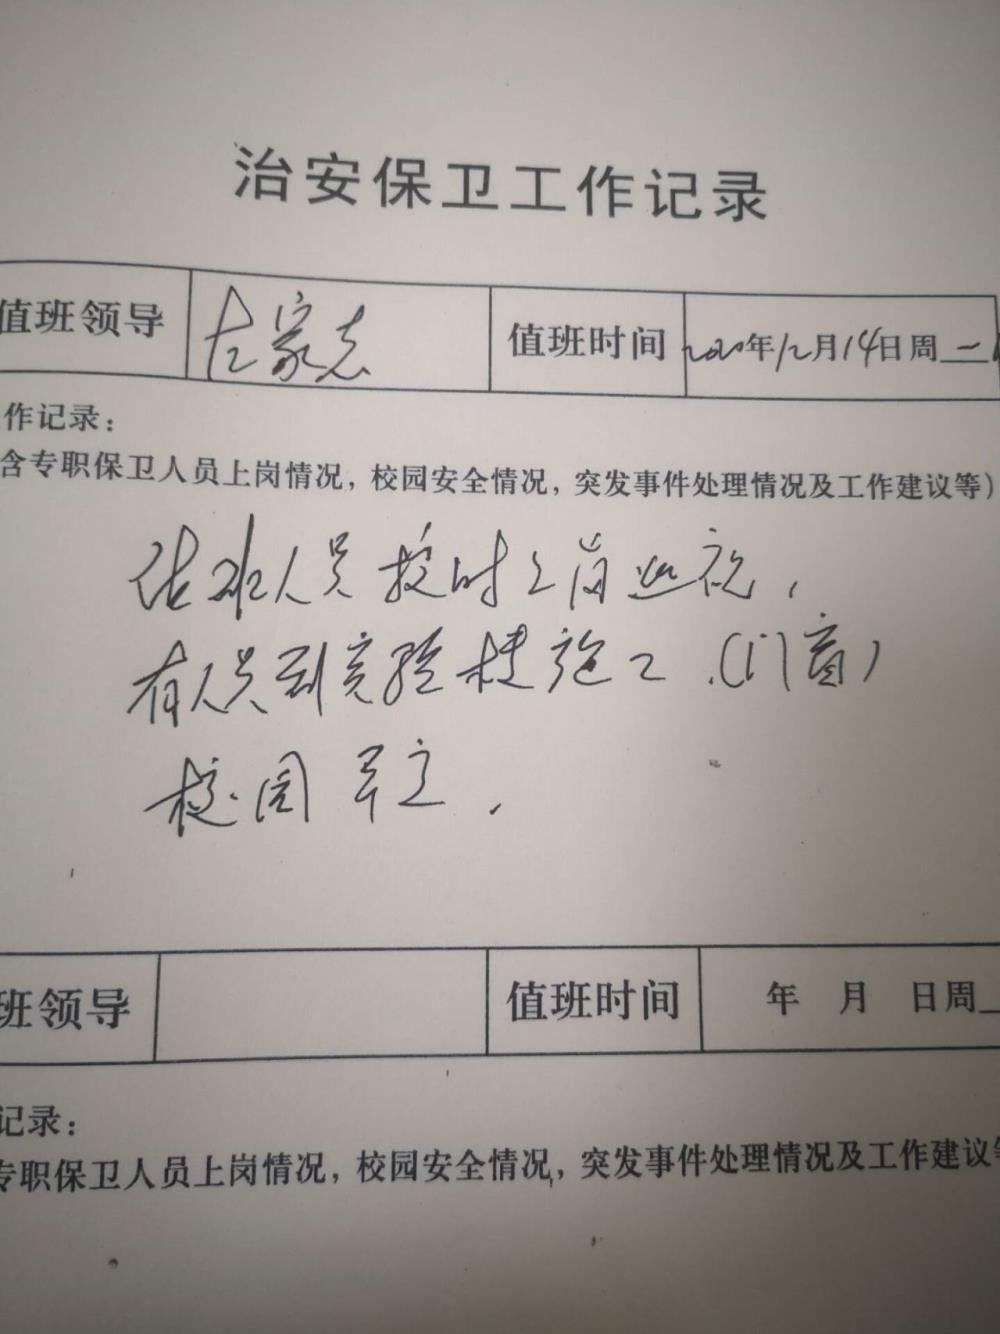 治安保卫工作记录
值班领导 左家志 值班时间 2020年12月14日周一
作记录：
含专职保卫人员上岗情况，校园安全情况，突发事件处理情况及工作建议等）
值班人员按时上岗巡视，
有人员到实验楼施工.（门窗）
校园
班领导 值班时间 年 月 日周
记录：
专职保卫人员上岗情况，校园安全情况，突发事件处理情况及工作建议等